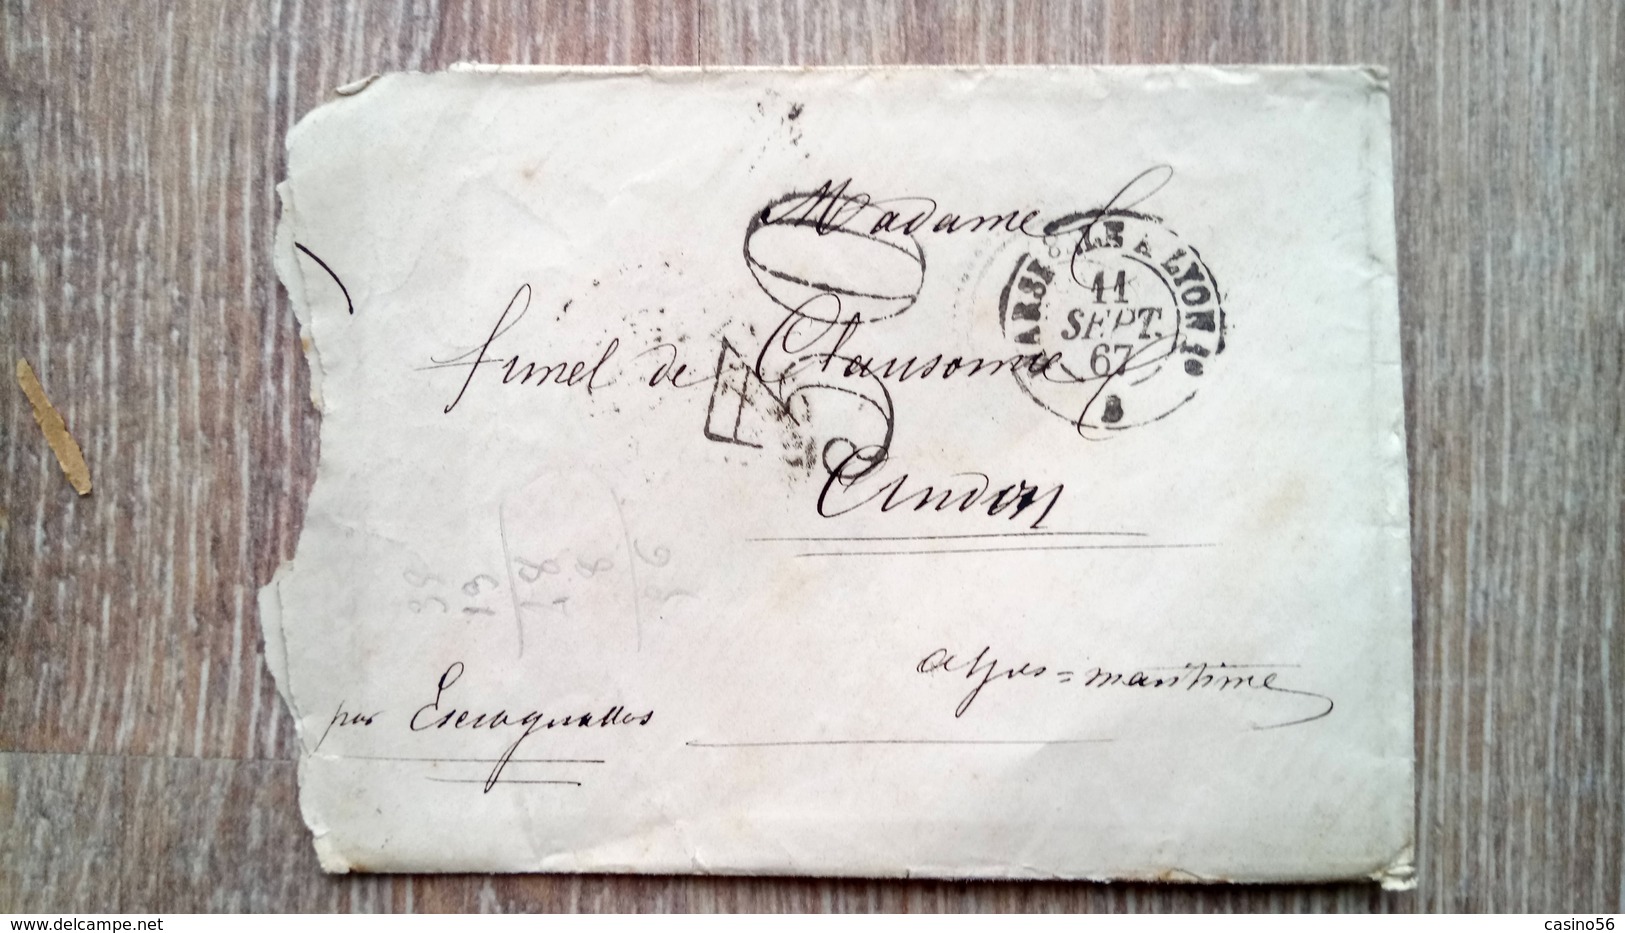 Madame
funel de Clausonne
Andon
alpes=maritime
par Escragnolles
MARSEILLE A LYON 1o
11
SEPT.
67
B
30
39
19
18
8
36
© delcampe.net
casino56